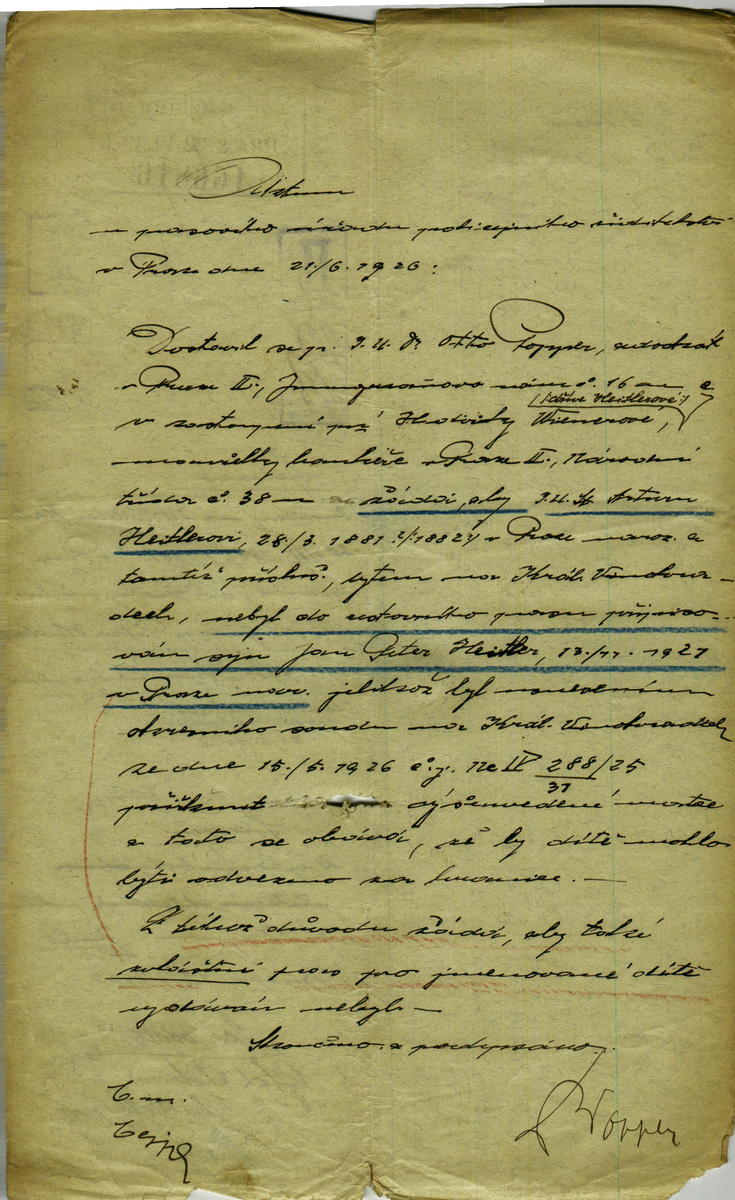 Aktum
u pasového úřadu policejního ředitelství
v Praze dne 21./6. 1926:
Dostavil se p. J.U.Dr Otto Popper, advokát
v Praze II., Jungmannovo nám č. 16 an
(:dříve Heitlerové:)
v zastoupení pí Hedviky Wienerové,
manželky bankéře v Praze II., Národní
třída č. 38 n žádá, aby J.U.Dr Arturu
Heitlerovi, 28./3. 1881 (:1882:) v Praze naroz. a
tamtéž přísluš., bytem na Král. Vinohra-
dech, nebyl do cestovního pasu připiso-
ván syn Jan Peter Heitler, 13./11. 1921
v Praze nar. jelikož byl usnesením
okresního soudu na Král. Vinohradech
ze dne 15./5. 1926 č.j. Nc IV 288/25
31
přiřknut výšeuvedené matce
a tato se obává, že by dítě mohlo
býti odvezeno za hranice. —
Z téhož důvodu žádá, aby také
zvláštní pas pro jmenované dítě
vydáván nebyl. —
Skončeno a podepsáno.
C. m.
Popper